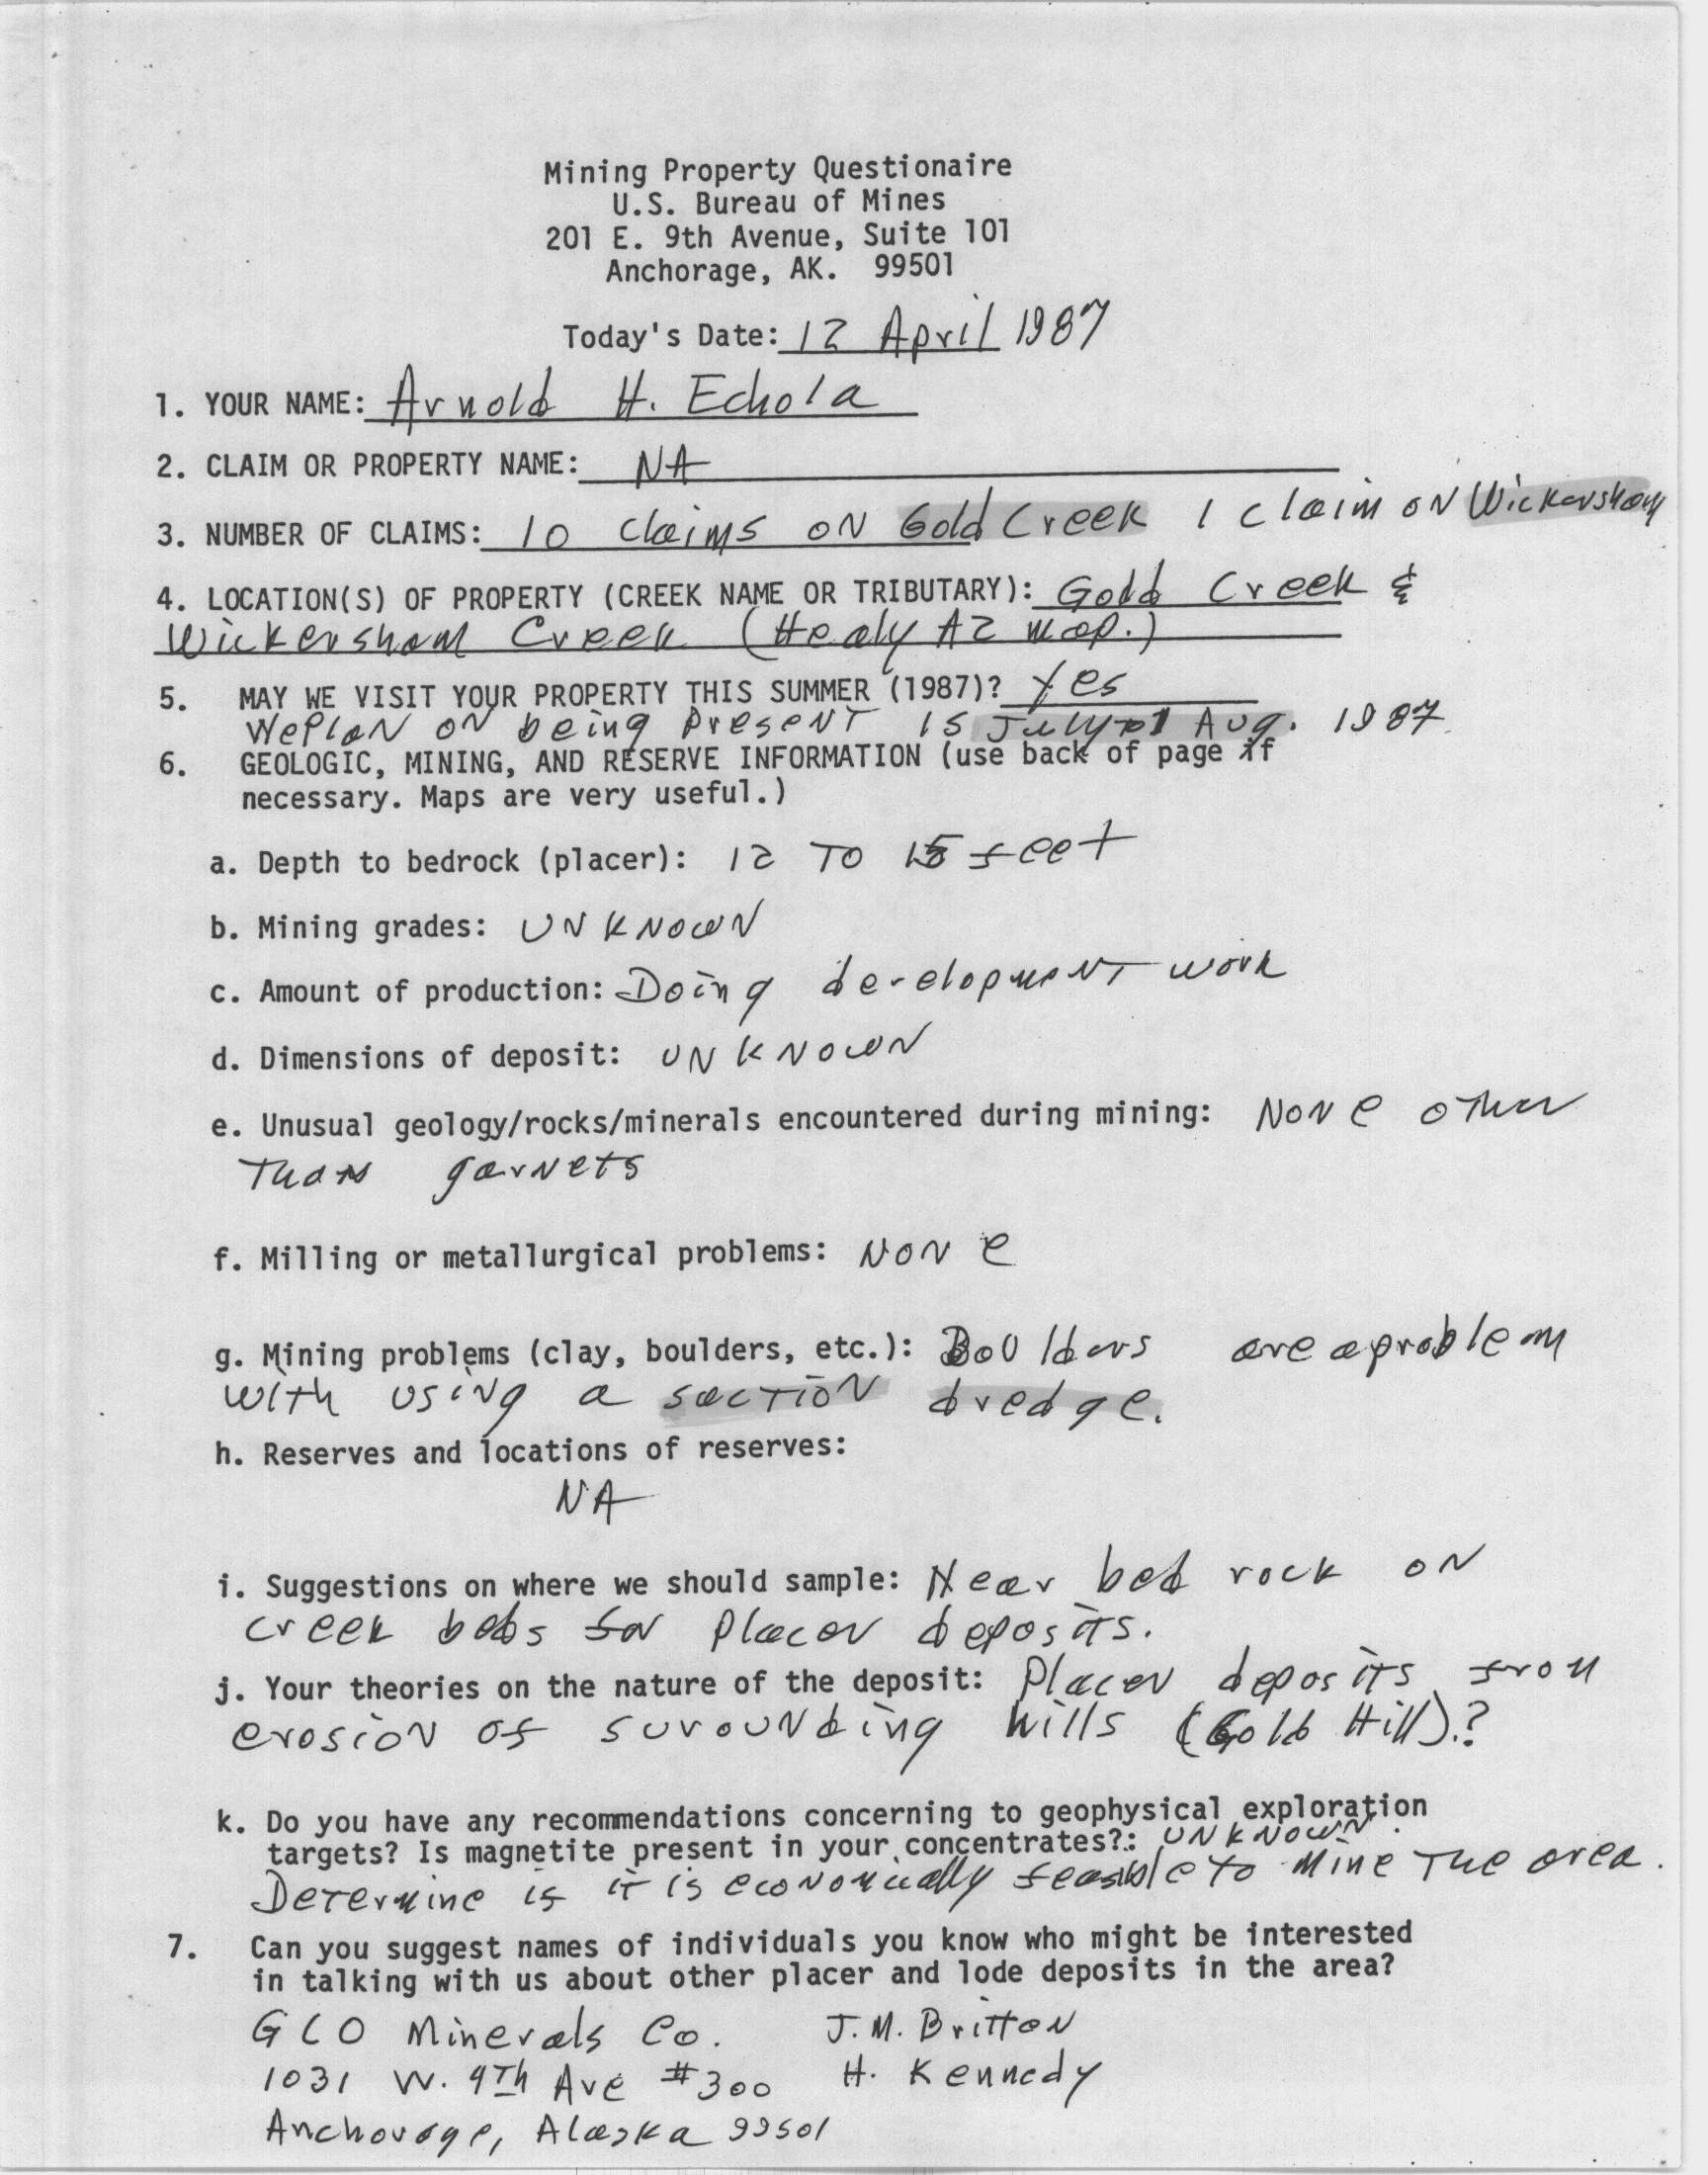 Mining Property Questionaire
U.S. Bureau of Mines
201 E. 9th Avenue, Suite 101
Anchorage, AK. 99501
Today's Date: 12 April 1987
1. YOUR NAME: Arnold H. Echola
2. CLAIM OR PROPERTY NAME: NA
3. NUMBER OF CLAIMS: 10 claims ON Gold Creek 1 claim ON Wickersham
4. LOCATION(S) OF PROPERTY (CREEK NAME OR TRIBUTARY): Gold Creek &
Wickersham Creek (Healy A2 map.)
5. MAY WE VISIT YOUR PROPERTY THIS SUMMER (1987)? Yes
We Plan on being Present 15 July to 1 Aug. 1987.
6. GEOLOGIC, MINING, AND RESERVE INFORMATION (use back of page if
necessary. Maps are very useful.)
a. Depth to bedrock (placer): 12 TO 15 feet
b. Mining grades: UNKNOWN
c. Amount of production: Doing development work
d. Dimensions of deposit: UNKNOWN
e. Unusual geology/rocks/minerals encountered during mining: None other
Than garnets
f. Milling or metallurgical problems: NONE
g. Mining problems (clay, boulders, etc.): Boulders are a problem
with using a suction dredge.
h. Reserves and locations of reserves:
NA
i. Suggestions on where we should sample: Near bed rock on
creek beds for Placer deposits.
j. Your theories on the nature of the deposit: Placer deposits from
erosion of surounding hills (Gold Hill).?
k. Do you have any recommendations concerning to geophysical exploration
targets? Is magnetite present in your concentrates?: UNKNOWN.
Determine if it is economically feasible to Mine The area.
7. Can you suggest names of individuals you know who might be interested
in talking with us about other placer and lode deposits in the area?
GCO Minerals Co. J.M. Britton
1031 W. 4Th Ave #300 H. Kennedy
Anchorage, Alaska 99501